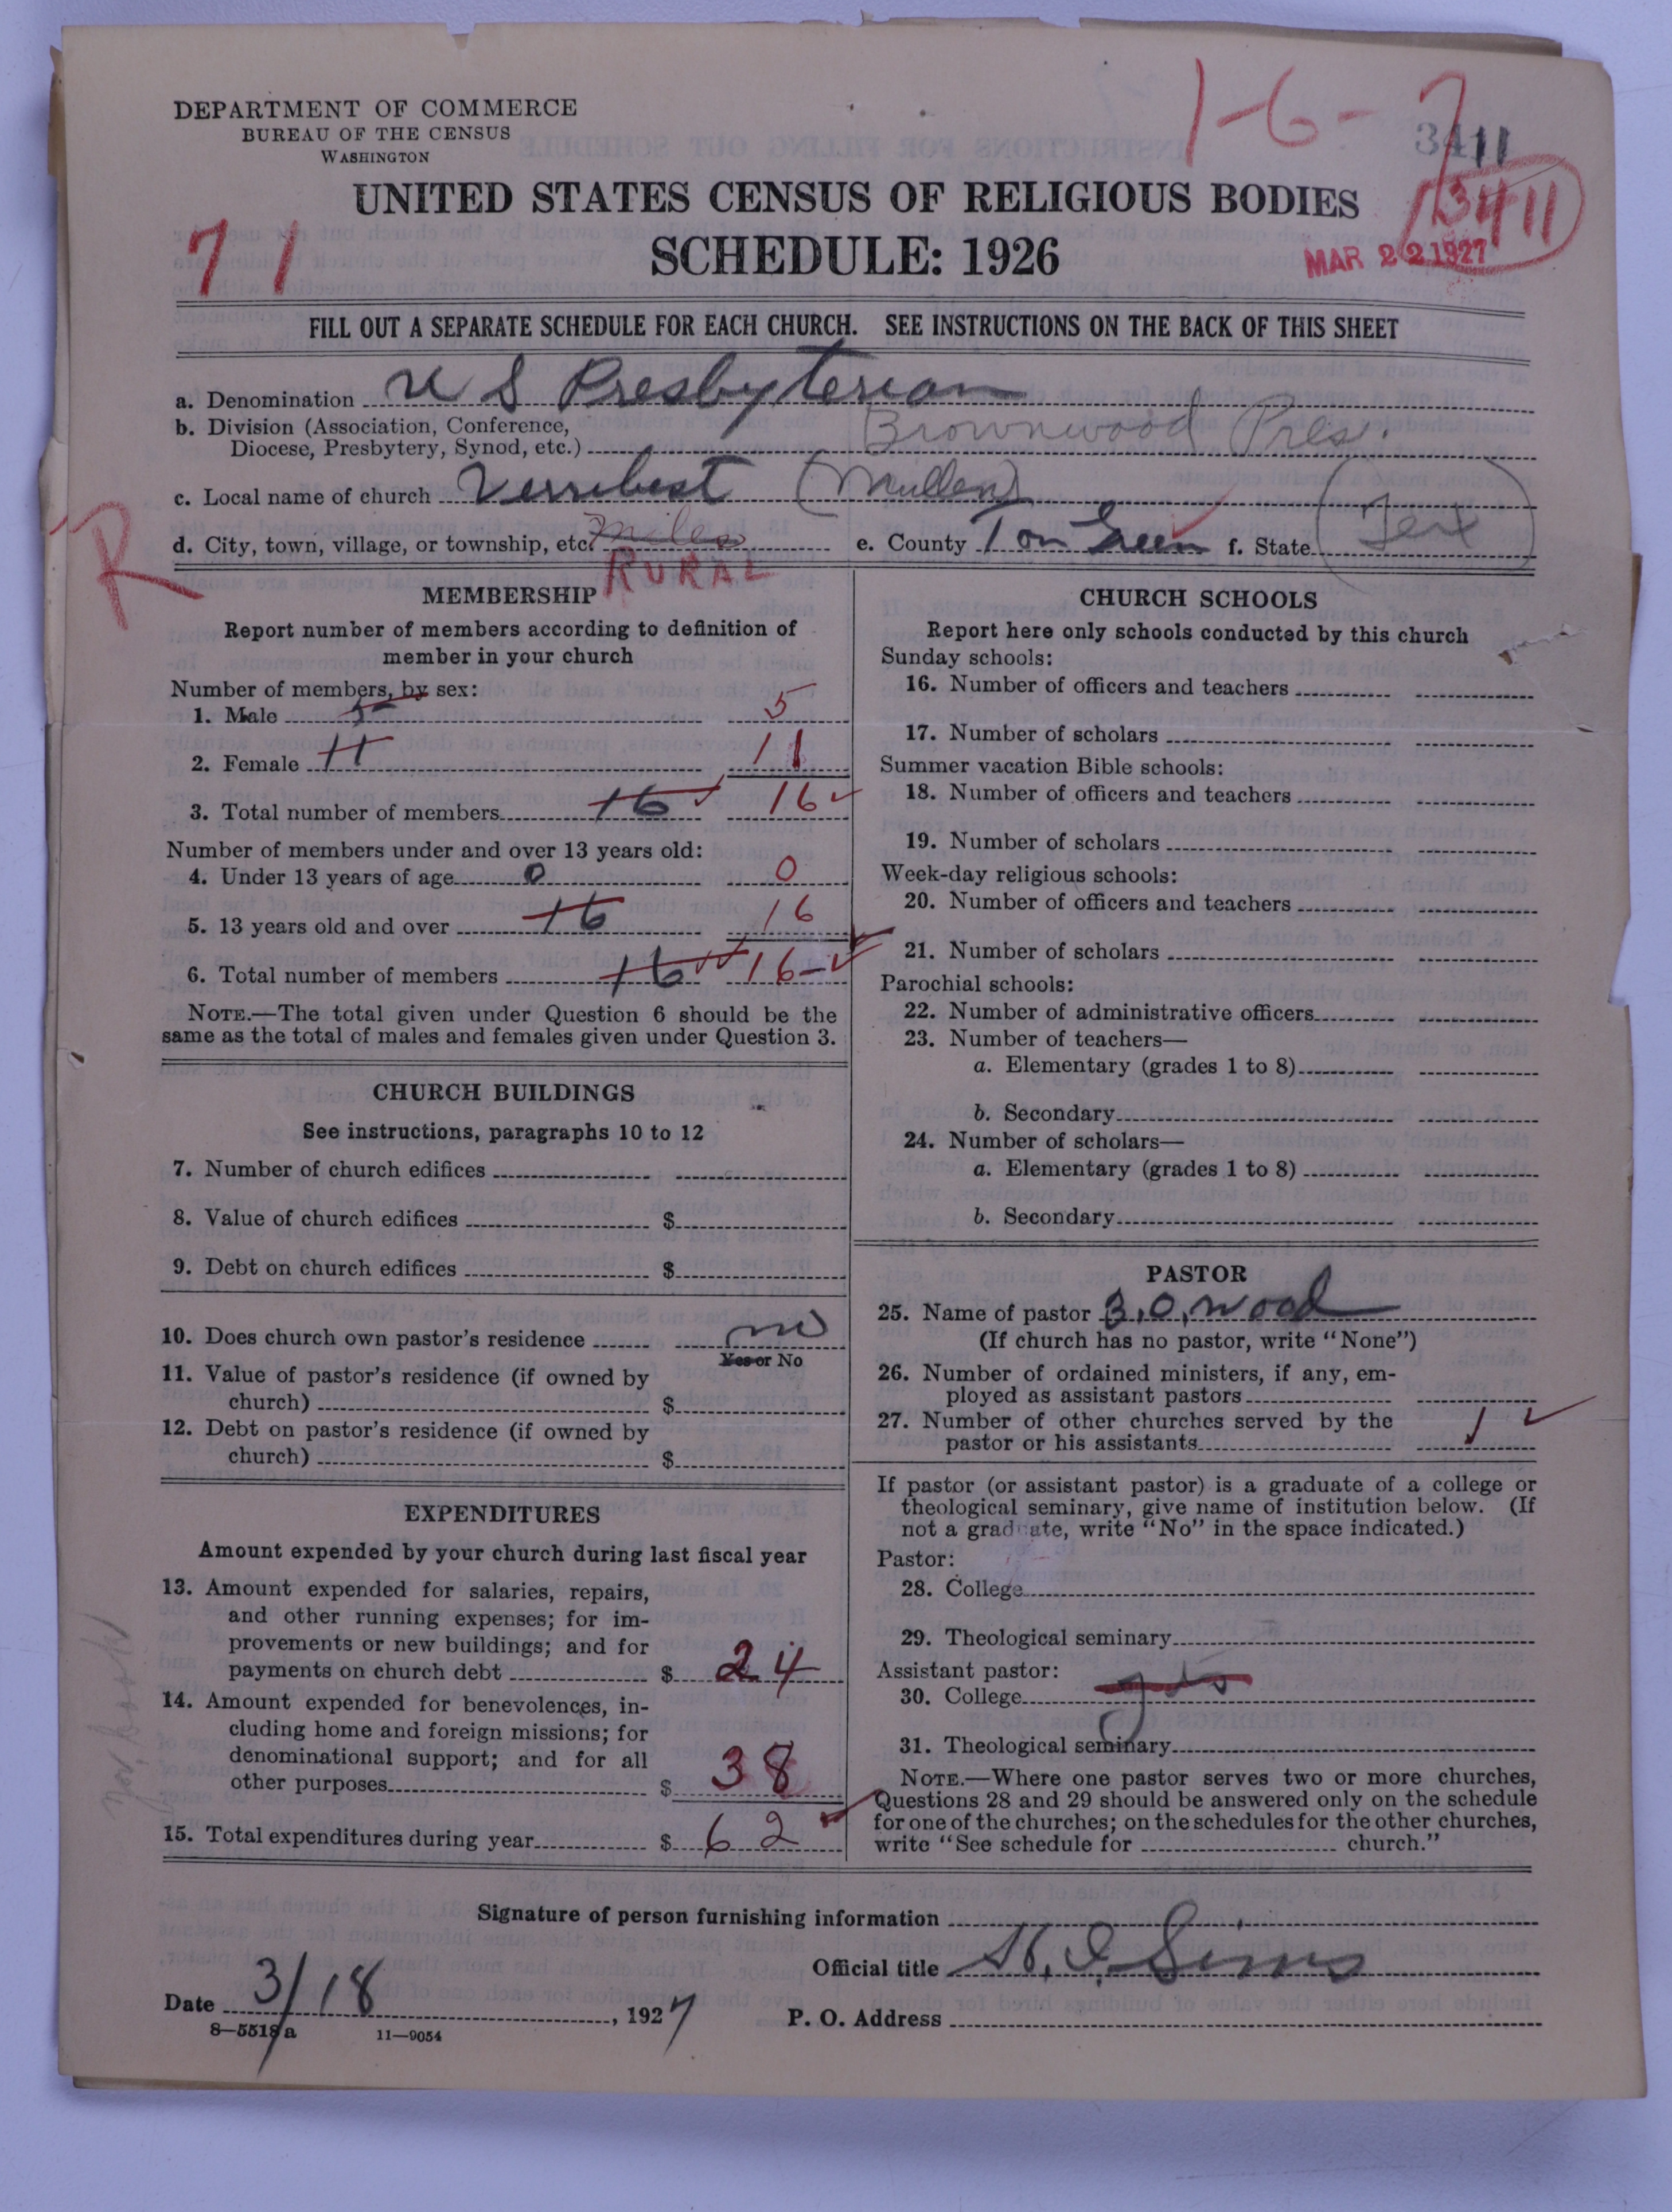 DEPARTMENT OF COMMERCE
BUREAU OF THE CENSUS
WASHINGTON
1-6-7
3411
UNITED STATES CENSUS OF RELIGIOUS BODIES
3411
71
SCHEDULE: 1926
MAR 22 1927
FILL OUT A SEPARATE SCHEDULE FOR EACH CHURCH. SEE INSTRUCTIONS ON THE BACK OF THIS SHEET
a. Denomination U S Presbyterian
b. Division (Association, Conference,
Diocese, Presbytery, Synod, etc.) Brownwood Pres.
c. Local name of church Verribest (Mullen)
d. City, town, village, or township, etc. Miles e. County Tom Green f. State (Tex)
R
RURAL
MEMBERSHIP
Report number of members according to definition of
member in your church
Number of members, by sex:
1. Male 5 5
2. Female 11 11
3. Total number of members 16 16
Number of members under and over 13 years old:
4. Under 13 years of age 0 0
5. 13 years old and over 16 16
6. Total number of members 16 16
NOTE.—The total given under Question 6 should be the
same as the total of males and females given under Question 3.
CHURCH BUILDINGS
See instructions, paragraphs 10 to 12
7. Number of church edifices
8. Value of church edifices $
9. Debt on church edifices $
10. Does church own pastor's residence no
Yes or No
11. Value of pastor's residence (if owned by
church) $
12. Debt on pastor's residence (if owned by
church) $
EXPENDITURES
Amount expended by your church during last fiscal year
13. Amount expended for salaries, repairs,
and other running expenses; for im-
provements or new buildings; and for
payments on church debt $ 24
14. Amount expended for benevolences, in-
cluding home and foreign missions; for
denominational support; and for all
other purposes $ 38
15. Total expenditures during year $ 62
CHURCH SCHOOLS
Report here only schools conducted by this church
Sunday schools:
16. Number of officers and teachers
17. Number of scholars
Summer vacation Bible schools:
18. Number of officers and teachers
19. Number of scholars
Week-day religious schools:
20. Number of officers and teachers
21. Number of scholars
Parochial schools:
22. Number of administrative officers
23. Number of teachers—
a. Elementary (grades 1 to 8)
b. Secondary
24. Number of scholars—
a. Elementary (grades 1 to 8)
b. Secondary
PASTOR
25. Name of pastor B. O. Wood
(If church has no pastor, write "None")
26. Number of ordained ministers, if any, em-
ployed as assistant pastors
27. Number of other churches served by the
pastor or his assistants 1
If pastor (or assistant pastor) is a graduate of a college or
theological seminary, give name of institution below. (If
not a graduate, write "No" in the space indicated.)
Pastor:
28. College
29. Theological seminary
Assistant pastor:
30. College yes
31. Theological seminary
NOTE.—Where one pastor serves two or more churches,
Questions 28 and 29 should be answered only on the schedule
for one of the churches; on the schedules for the other churches,
write "See schedule for church."
Signature of person furnishing information
Official title Sims
Date 3/18, 1927 P. O. Address
8—5518a 11—9054